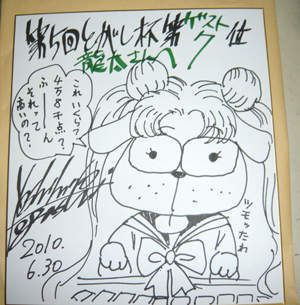 第5回とがし杯第7位
ゲスト
龍太さんへ
これいくら?
4万8千点?
ふーーん
それって
高いの?
ツモったわ
2010.
6.30